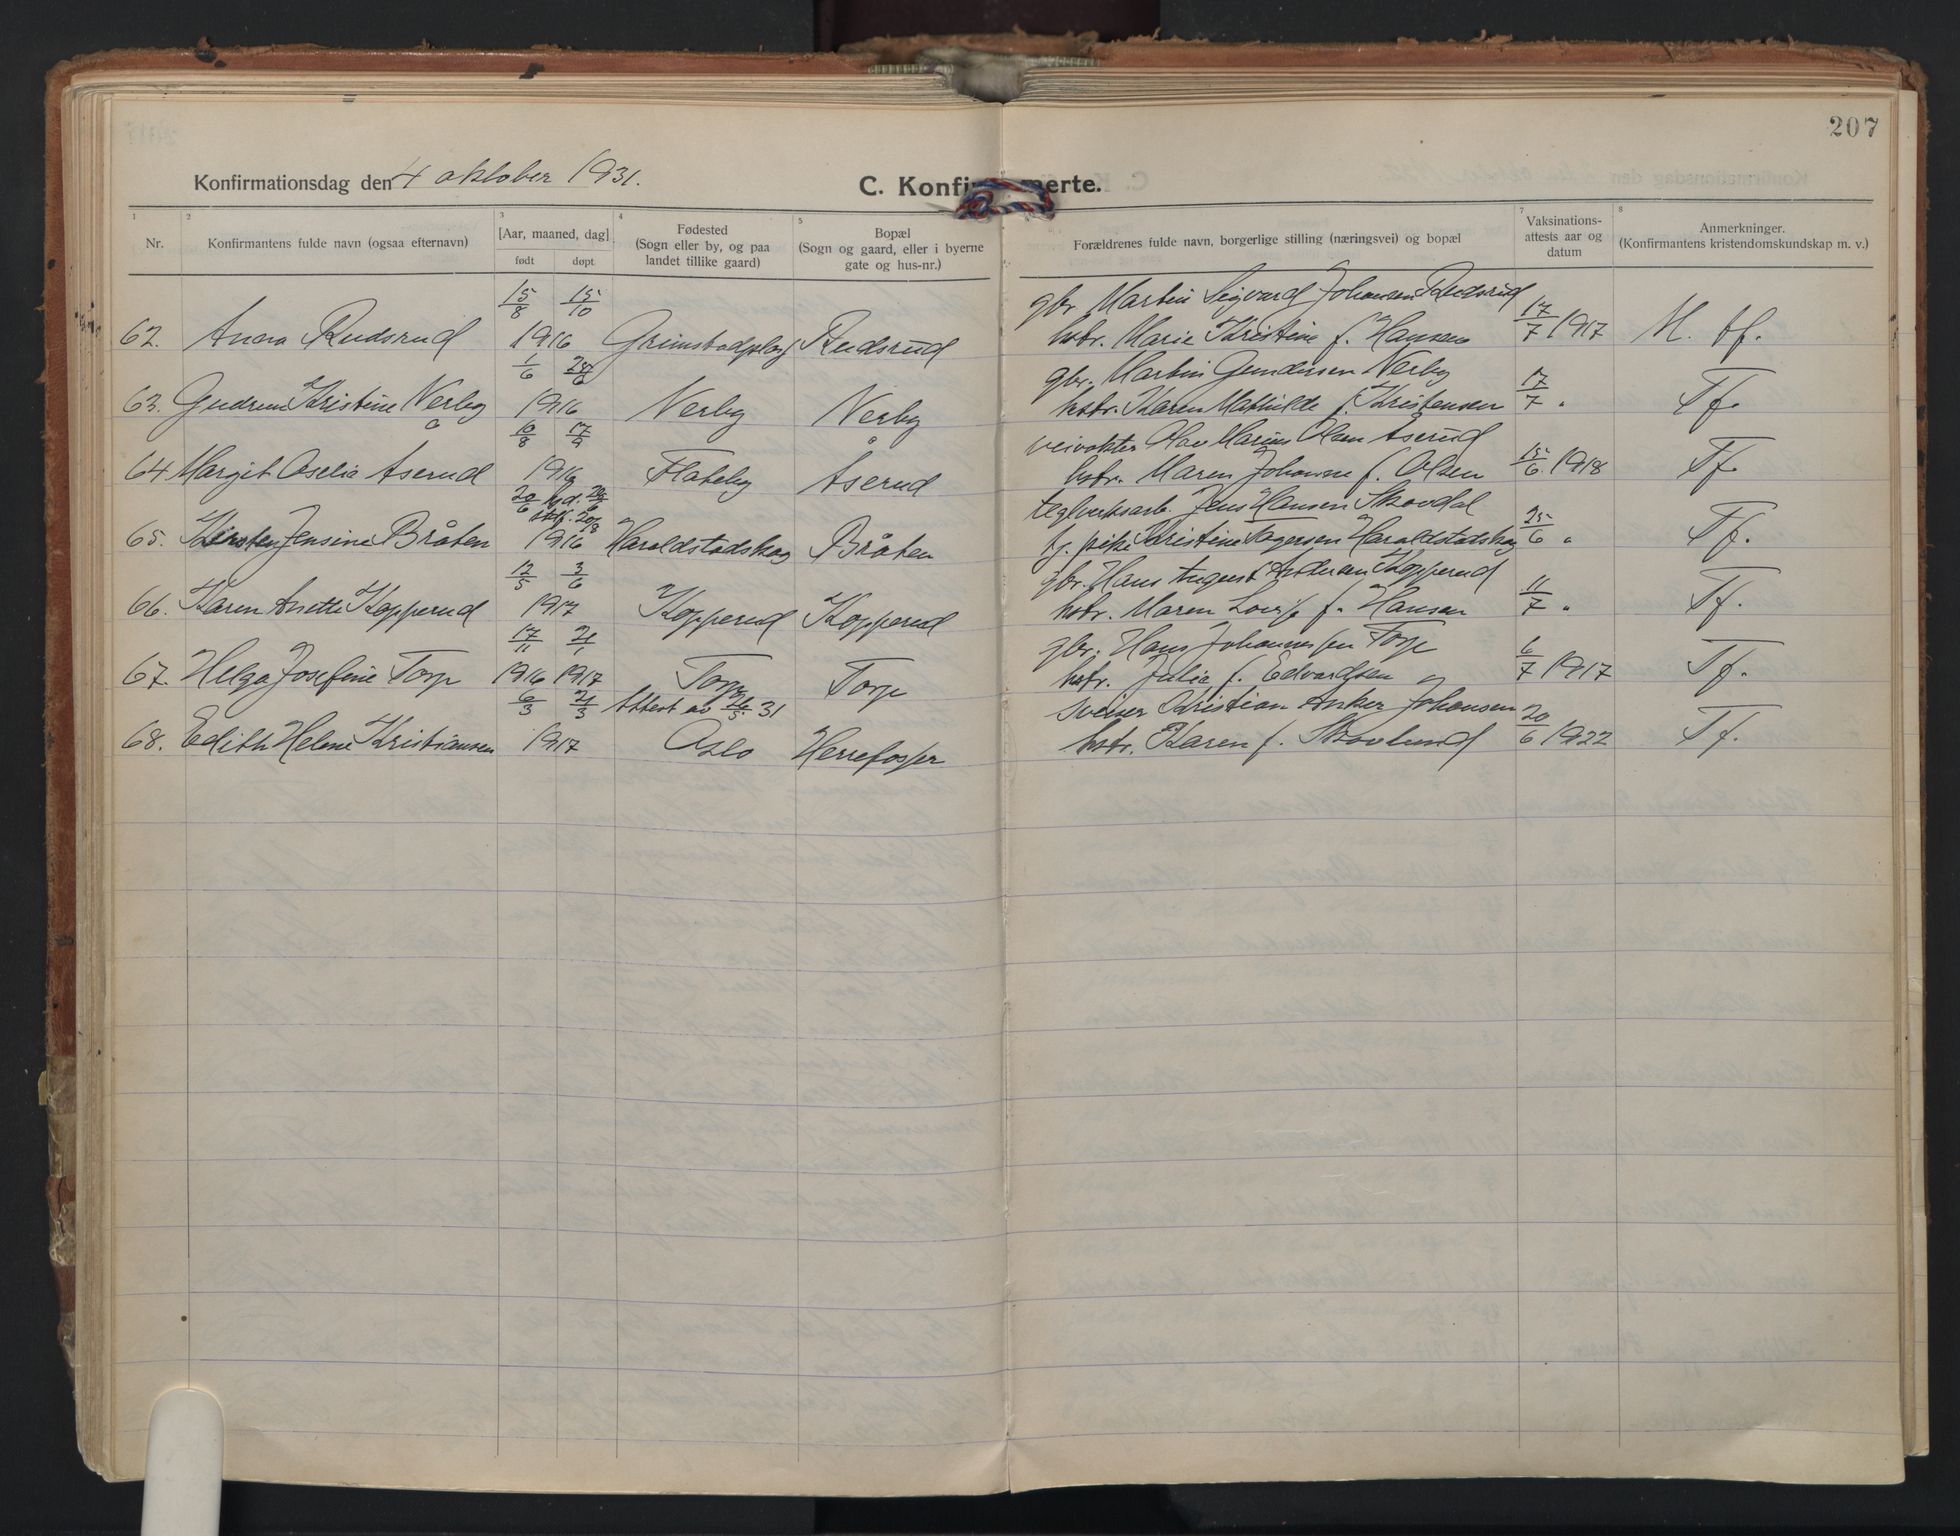 207
Konfirmationsdag den 4 oktober 1931.
C. Konfir merte.
1 2 3 4 5 7 8
Nr.
Konfirmantens fulde navn (ogsaa efternavn)
[Aar, maaned, dag]
født døpt
Fødested
(Sogn eller by, og paa
landet tillike gaard)
Bopæl
(Sogn og gaard, eller i byerne
gate og hus-nr.)
Forældrenes fulde navn, borgerlige stilling (næringsvei) og bopæl
Vaksinations-
attests aar og
datum
Anmerkninger.
(Konfirmantens kristendomskundskap m. v.)
15/8 15/10 gbr. Martin Sigvard Johansen Rudsrud
62. Anna Rudsrud 1916 Grimstadplas Rudsrud hstr. Marie Kristine f. Hansen 17/7 1917 M. tf.
1/6 gbr. Martin Gundersen Nerby
63. Gudrun Kristine Nerby 1916 Nerby Nerby hstr. Karen Mathilde f. Kristensen 17/7 " Tf.
6/8 17/9 veivokter Olav Marius Olsen Åserud
64 Margit Oselia Åserud 1916 Flateby Åserud hstr. Maren Johanne f. Olsen 15/6 1918 Tf.
20/6 hd. 20/6 teglverksarb. Jens Hansen Skovdal
stkf. 20/8
65. Kirsten Jensine Bråten 1916 Haraldstadskog Bråten fg. pike Kristine Torgersen Haraldstadskog 25/6 " Tf.
12/5 3/6 gbr. Hans August Andersen Kopperud
66. Karen Anette Kopperud 1917 Kopperud Kopperud hstr. Maren Lovise f. Hansen 11/7 " Tf.
17/11 21/1 gbr. Hans Johannessen Torp
67. Helga Josefine Torp 1916 1917 Torp Torp hstr. Julie f. Edvardsen 6/7 1917 Tf.
6/3 21/3 Attest av 26/5 31 sveiser Kristian Anker Johansen
68. Edith Helene Kristiansen 1917 Oslo Herrefosser hstr. Karen f. Skovlund 20/6 1922 Tf.